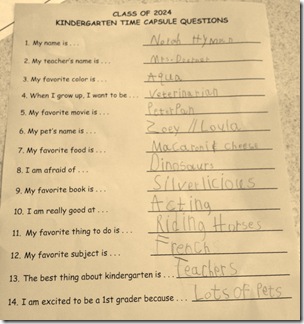 CLASS OF 2024
KINDERGARTEN TIME CAPSULE QUESTIONS
1. My name is . . . Norah Hyman
2. My teacher's name is . . . Mrs.
3. My favorite color is . . . Aqua
4. When I grow up, I want to be . . . Veterinarian
5. My favorite movie is . . . PeterPan
6. My pet's name is . . . Zoey // Layla
7. My favorite food is . . . Macaroni & Cheese
8. I am afraid of . . . Dinosaurs
9. My favorite book is . . . Silverlicious
10. I am really good at . . . Acting
11. My favorite thing to do is . . . Riding Horses
12. My favorite subject is . . . French
13. The best thing about kindergarten is . . . Teachers
14. I am excited to be a 1st grader because . . . Lots of Pets